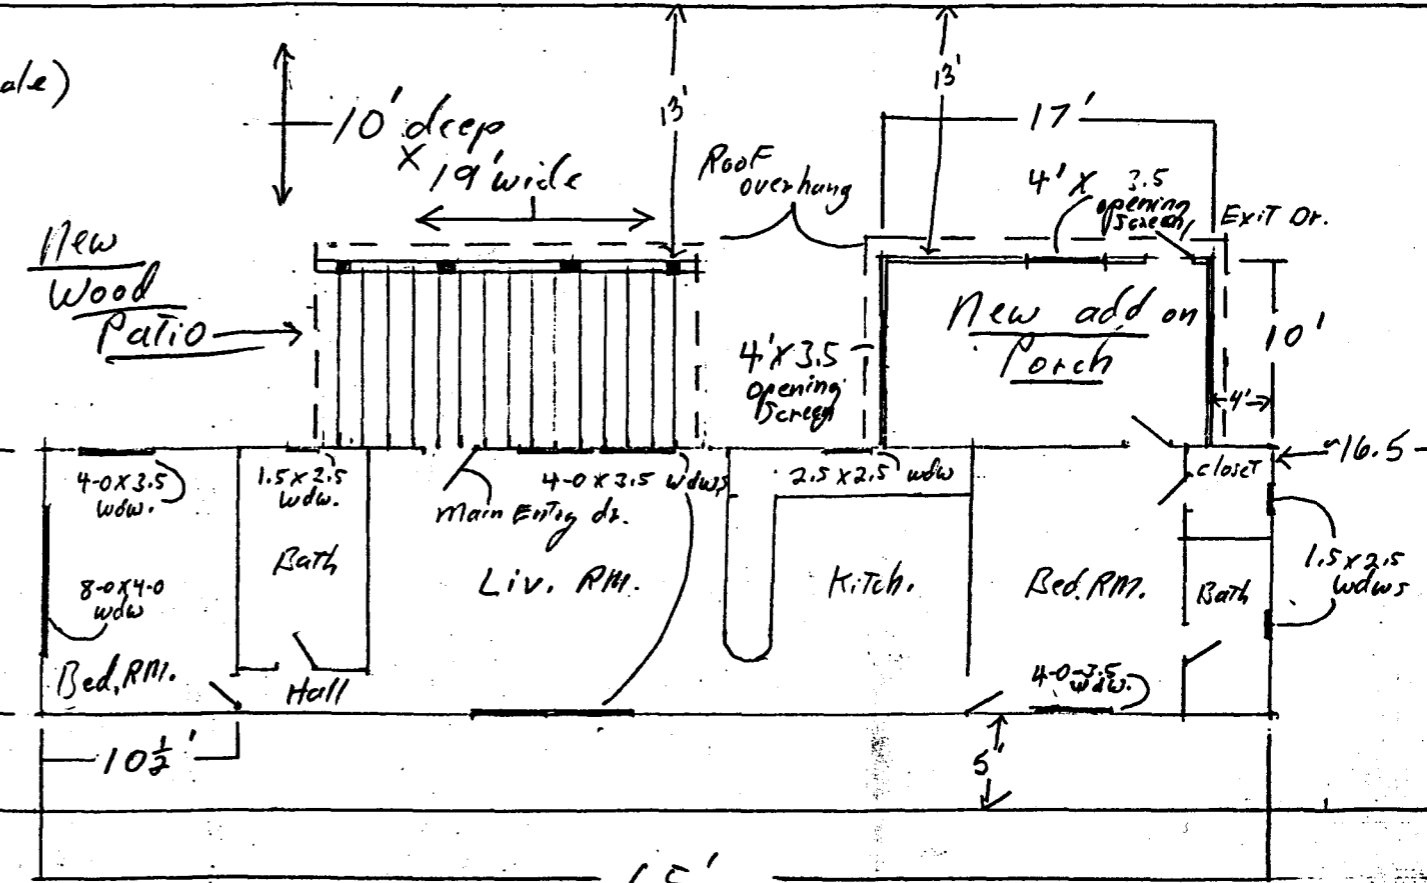 ale)
10' deep
x
19' wide
13'
13'
17'
Roof
overhang
4' x 3.5
opening
screen
Exit Dr.
New
Wood
Patio
New add on
Porch
10'
4'x3.5
opening
screen
4'
~16.5
4-0x3.5
wdw.
1.5x2.5
wdw.
4-0x3.5 wdws
Main Entry dr.
2.5x2.5 wdw
closet
8-0x4-0
wdw
Bath
Liv. RM.
Kitch.
Bed.RM.
Bath
1.5x2.5
wdws
Bed.RM.
Hall
4-0-3.5
wdw.
10½'
5'